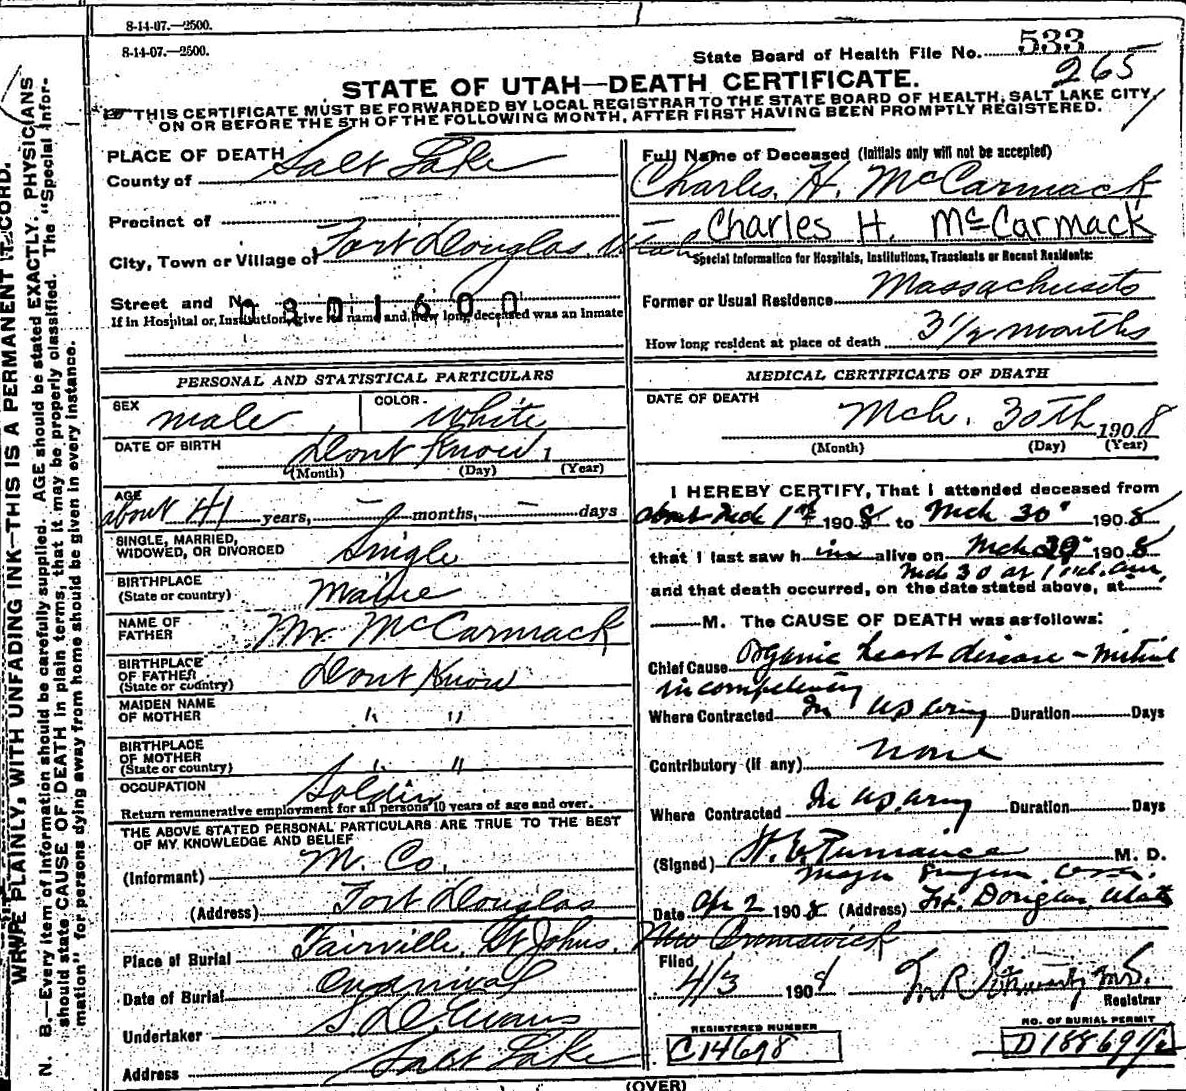 8-14-07.—2500.
8-14-07.—2500.
State Board of Health File No. 533
265
STATE OF UTAH—DEATH CERTIFICATE.
THIS CERTIFICATE MUST BE FORWARDED BY LOCAL REGISTRAR TO THE STATE BOARD OF HEALTH, SALT LAKE CITY,
ON OR BEFORE THE 5TH OF THE FOLLOWING MONTH, AFTER FIRST HAVING BEEN PROMPTLY REGISTERED.
PLACE OF DEATH
County of Salt Lake
Precinct of
City, Town or Village of Fort Douglas, Utah
Street and No.
0301600
If in Hospital or, Institution, give its name and, how long deceased was an inmate
Full Name of Deceased (Initials only will not be accepted)
Charles. H. McCarmack
Charles H. McCarmack
Special Information for Hospitals, Institutions, Transients or Recent Residents:
Former or Usual Residence Massachusits
How long resident at place of death 3 1/2 months
PERSONAL AND STATISTICAL PARTICULARS
SEX male
COLOR white
DATE OF BIRTH Dont Know 1
(Month) (Day) (Year)
AGE
about 41 years, - months, - days
SINGLE, MARRIED,
WIDOWED, OR DIVORCED Single
BIRTHPLACE
(State or country) Maine
NAME OF
FATHER Mr. McCarmack
BIRTHPLACE
OF FATHER
(State or country) Dont Know
MAIDEN NAME
OF MOTHER " "
BIRTHPLACE
OF MOTHER
(State or country) " "
OCCUPATION Soldier
Return remunerative employment for all persons 10 years of age and over.
THE ABOVE STATED PERSONAL PARTICULARS ARE TRUE TO THE BEST
OF MY KNOWLEDGE AND BELIEF
(Informant) M. Co.
(Address) Fort Douglas
Place of Burial Fairville, St Johns, New Brunswick
Date of Burial On arrival
Undertaker S. D. Evans
Address Salt Lake
MEDICAL CERTIFICATE OF DEATH
DATE OF DEATH
Mch. 30th 1908
(Month) (Day) (Year)
I HEREBY CERTIFY, That I attended deceased from
about Mch 1st 1908 to Mch 30" 1908
that I last saw him alive on Mch 30" 1908
Mch 30 at 1
and that death occurred, on the date stated above, at
M. The CAUSE OF DEATH was as follows:
Chief Cause Organic heart disease - mitral
incompetency
Where Contracted In US Army Duration Days
Contributory (if any) none
Where Contracted In US Army Duration Days
(Signed) M. D.
Major Surgeon
Date Apr 2 1908 (Address) Ft. Douglas, Utah
Filed
4/3 1908
Registrar
REGISTERED NUMBER
C14698
NO. OF BURIAL PERMIT
(OVER)
WRITE PLAINLY, WITH UNFADING INK—THIS IS A PERMANENT RECORD.
N. B.—Every item of information should be carefully supplied. AGE should be stated EXACTLY. PHYSICIANS
should state CAUSE OF DEATH in plain terms, that it may be properly classified. The "Special Infor-
mation" for persons dying away from home should be given in every instance.